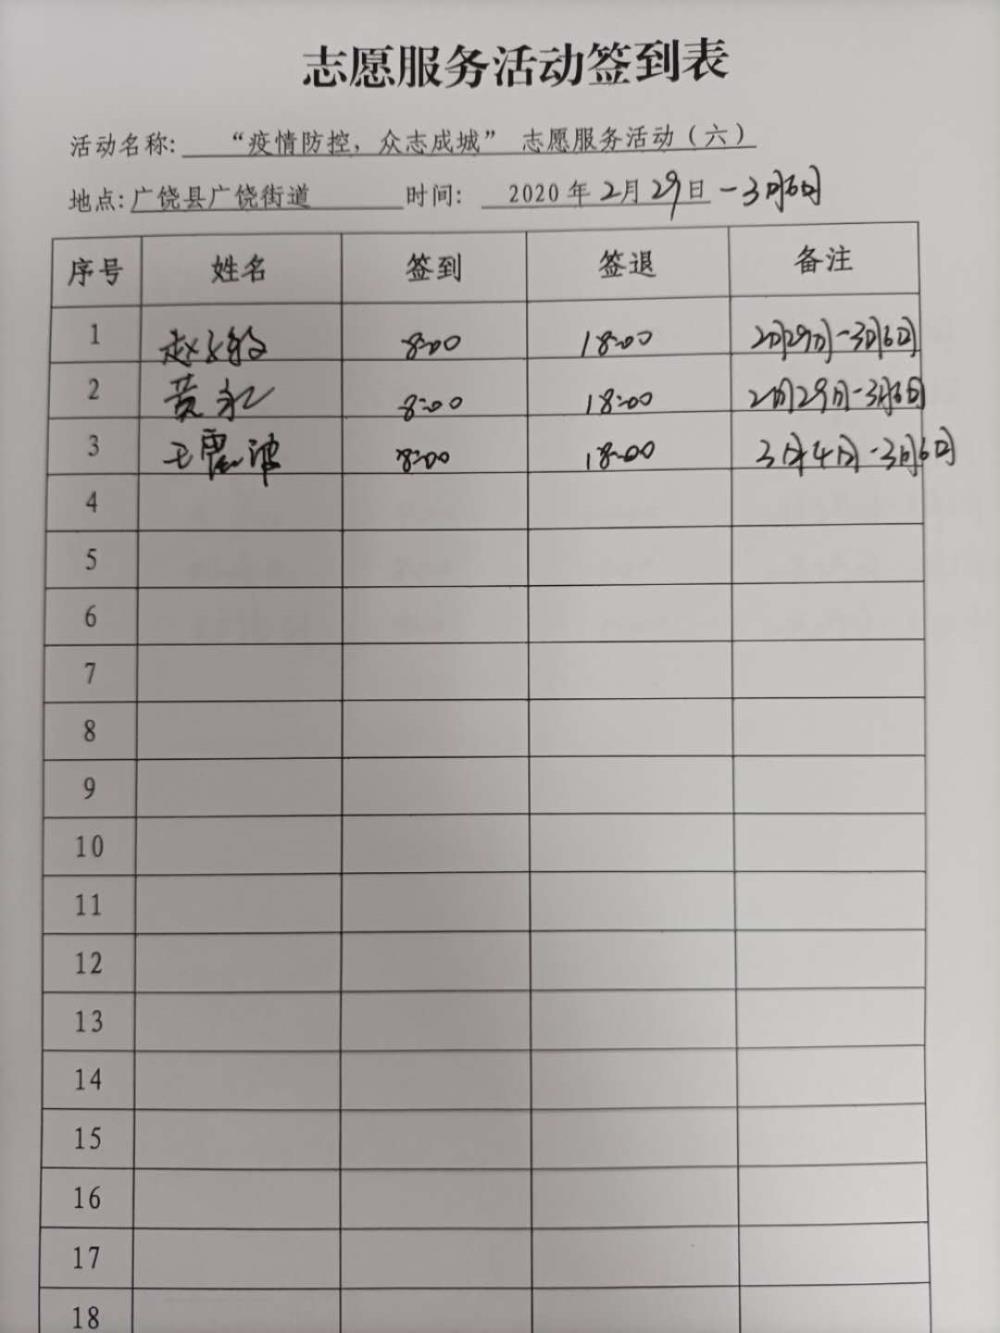 志愿服务活动签到表
活动名称: “疫情防控，众志成城” 志愿服务活动（六）
地点: 广饶县广饶街道 时间: 2020年2月29日-3月6日
序号 姓名 签到 签退 备注
1 赵 8:00 18:00 2月29日-3月6日
2 黄永 8:00 18:00 2月29日-3月6日
3 王震波 8:00 18:00 3月4日-3月6日
4
5
6
7
8
9
10
11
12
13
14
15
16
17
18